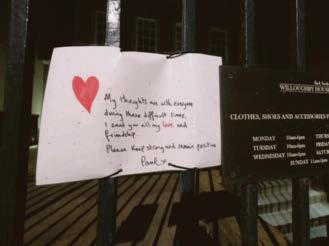 My thoughts are with everyone
during these difficult times,
I send you all my love and
friendship.
Please keep strong and remain positive
Paul
WILLOUGHBY HOUSE
CLOTHES, SHOES AND ACCESSORIES
MONDAY 10am-6pm
TUESDAY 10am-6pm
WEDNESDAY 10am-6pm
SUNDAY 11am